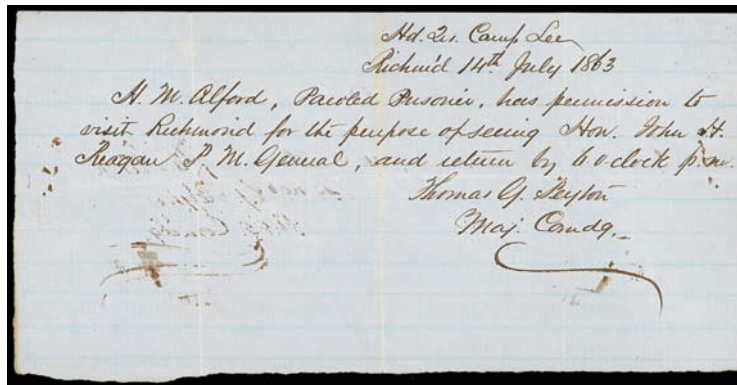 Hd. Qrs. Camp Lee
Richm'd 14th July 1863
H. M. Alford, Paroled Prisoner, has permission to
visit Richmond for the purpose of seeing Hon. John H.
Reagan P. M. General, and return by 6 o clock p.m.
Thomas G. Peyton
Maj. Comdg.